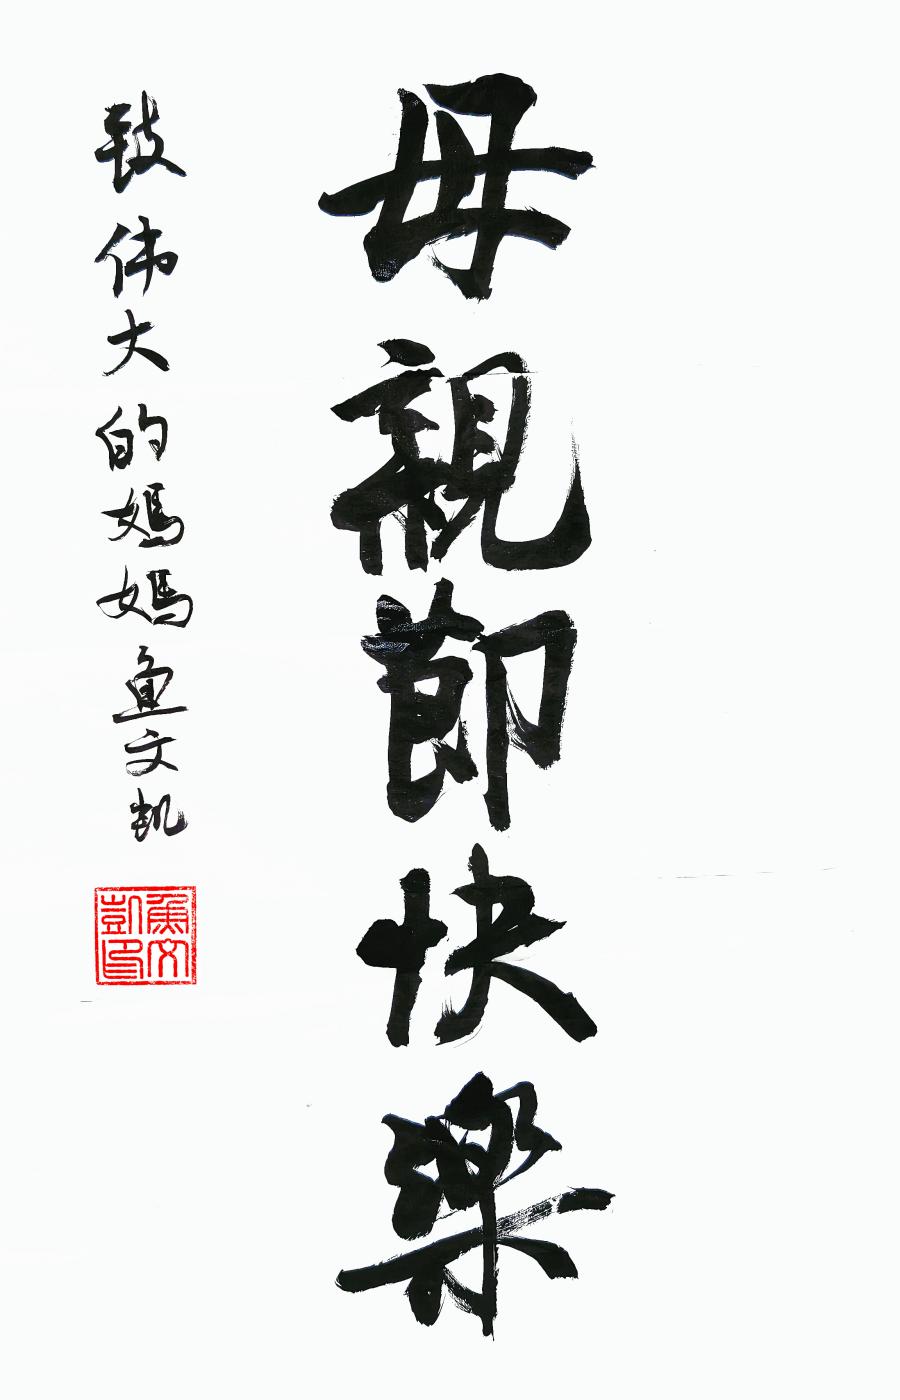 母親節快樂
致伟大的媽媽鱼文凯
魚文
凱印